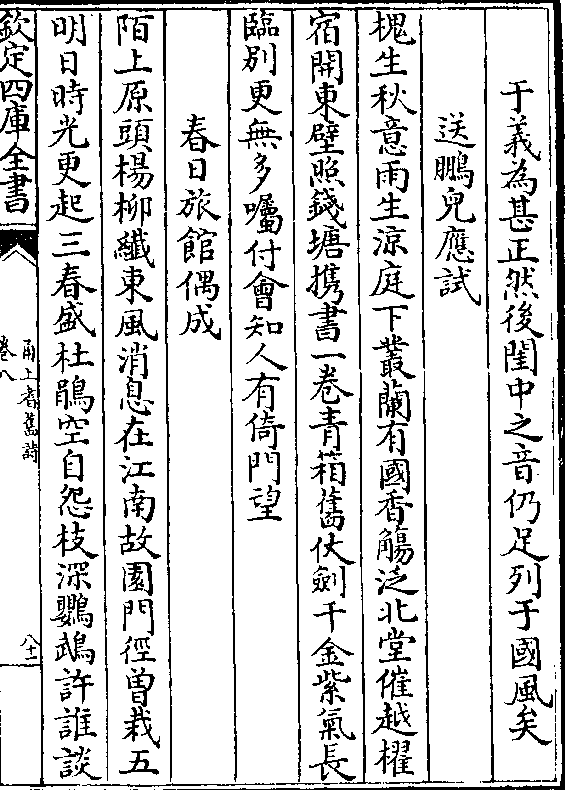 于義為甚正然後閨中之音仍足列于國風矣
送鵬兒應試
槐生秋意雨生涼庭下叢蘭有國香觴泛北堂催越櫂
宿開東壁照錢塘携書一卷青箱舊仗劍千金紫氣長
臨別更無多囑付會知人有倚門望
春日旅館偶成
陌上原頭楊柳纖東風消息在江南故園門徑曾栽五
明日時光更起三春盛杜鵑空自怨枝深鸚鵡許誰談
欽定四庫全書
甬上耆舊詩
卷八